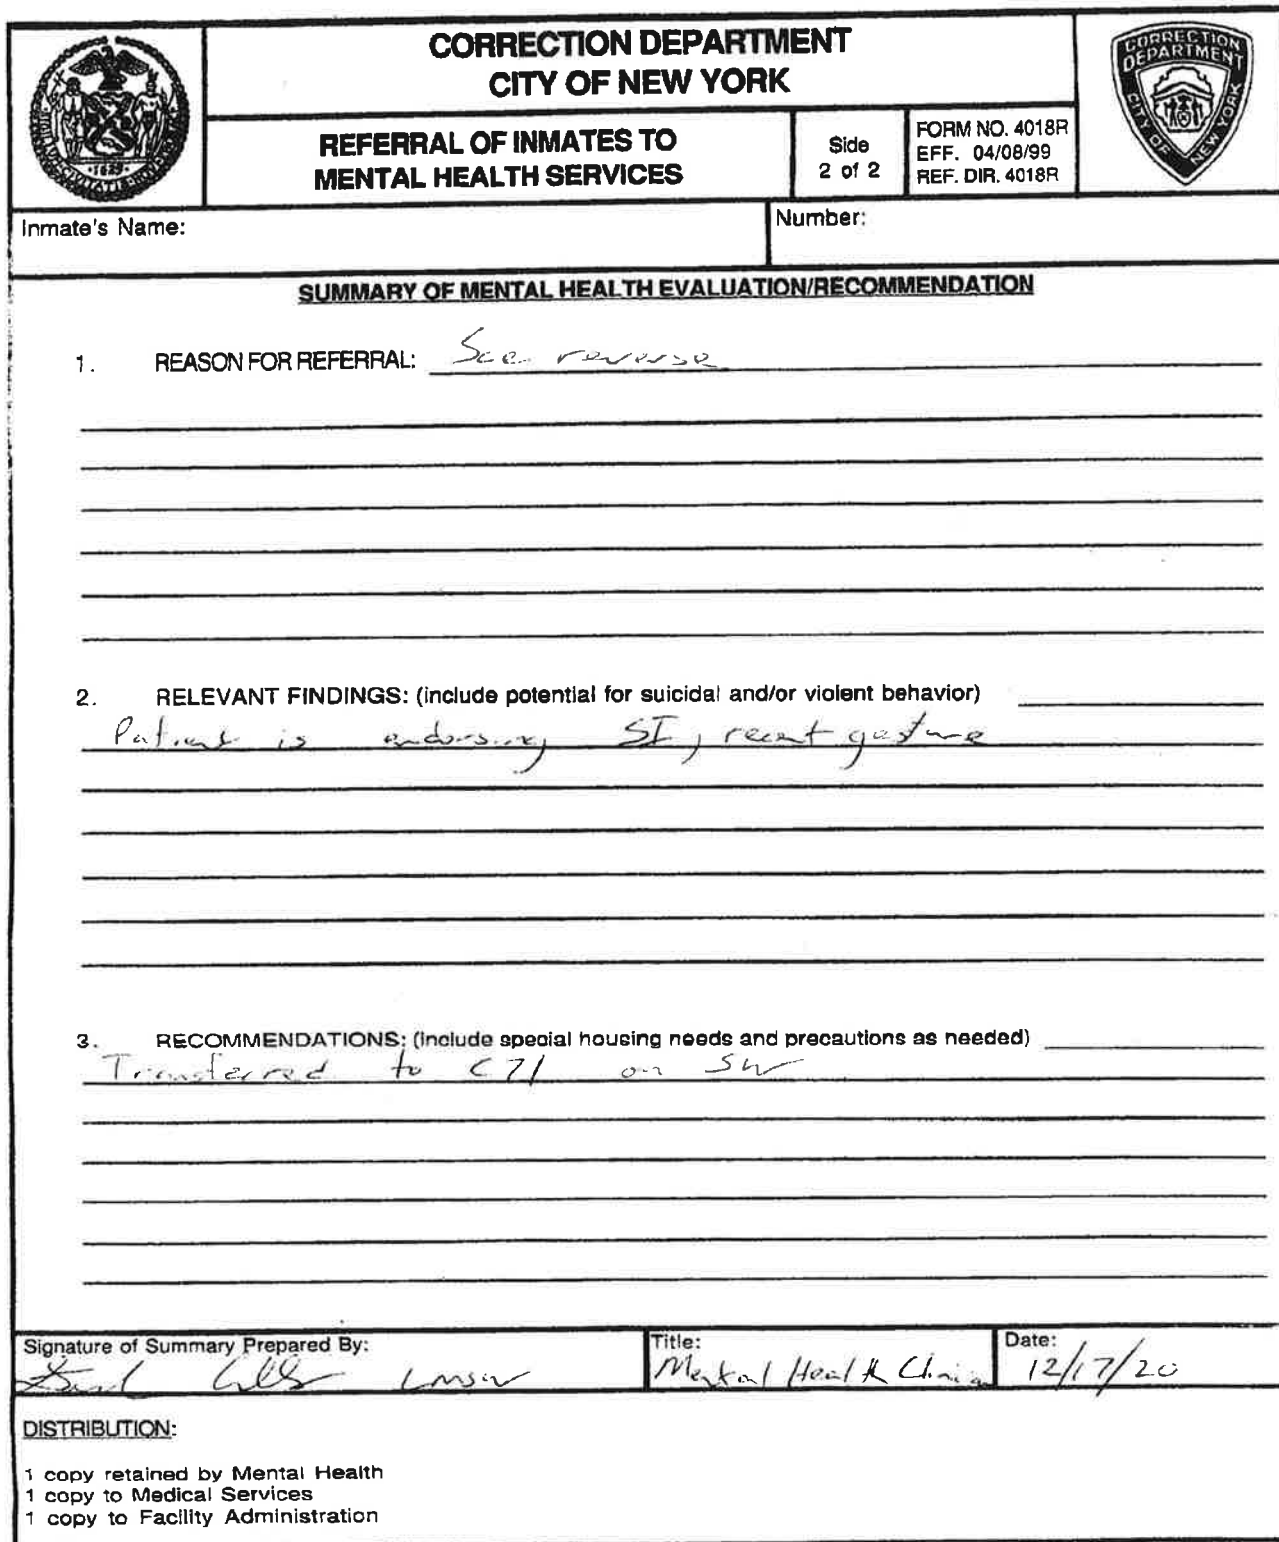 CORRECTION DEPARTMENT
CITY OF NEW YORK
REFERRAL OF INMATES TO
MENTAL HEALTH SERVICES
Side
2 of 2
FORM NO. 4018R
EFF. 04/08/99
REF. DIR. 4018R
CORRECTION
DEPARTMENT
CITY OF NEW YORK
1625
Inmate's Name:
Number:
SUMMARY OF MENTAL HEALTH EVALUATION/RECOMMENDATION
1. REASON FOR REFERRAL: See reverse
2. RELEVANT FINDINGS: (include potential for suicidal and/or violent behavior)
Patient is endorsing SI, recent gesture
3. RECOMMENDATIONS: (include special housing needs and precautions as needed)
Transferred to C71 on SW
Signature of Summary Prepared By:
LMSW
Title:
Mental Health Clinician
Date:
12/17/20
DISTRIBUTION:
1 copy retained by Mental Health
1 copy to Medical Services
1 copy to Facility Administration